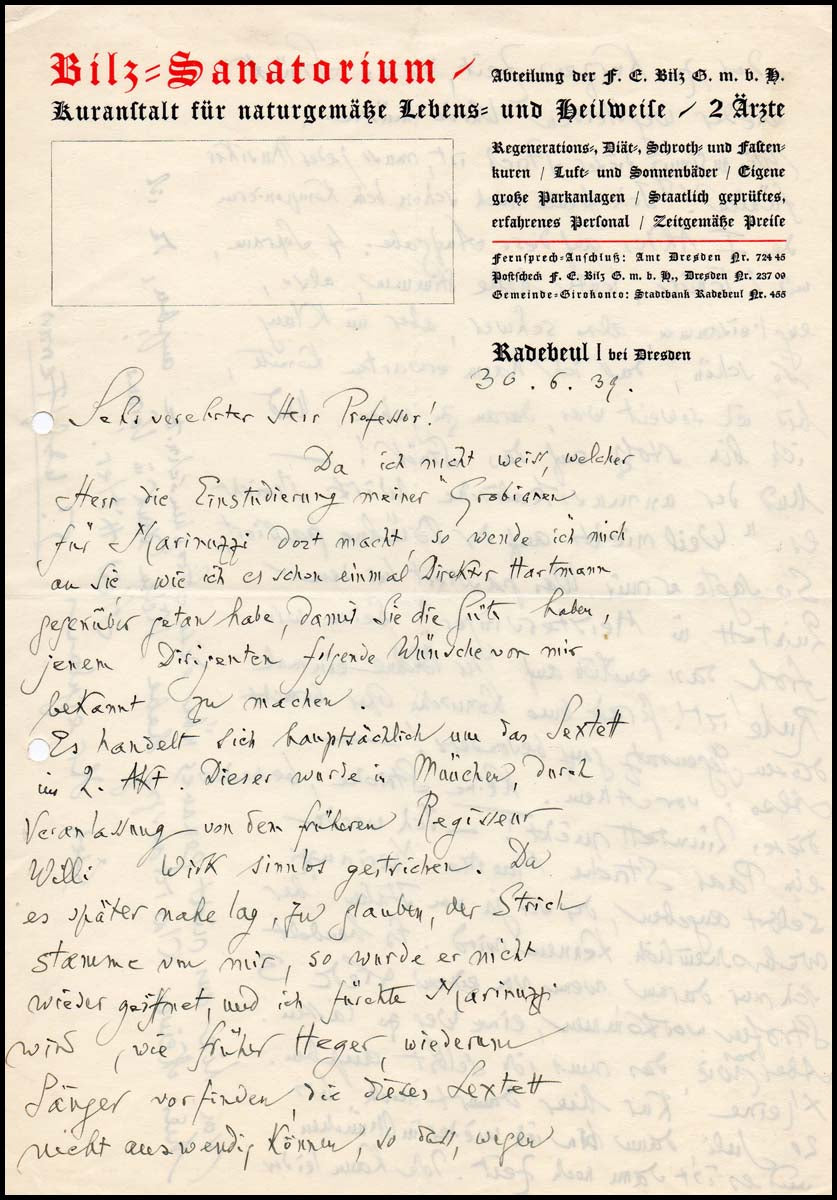 Bilz-Sanatorium /
Abteilung der F. E. Bilz G. m. b. H.
Kuranstalt für naturgemäße Lebens- und Heilweise / 2 Ärzte
Regenerations-, Diät-, Schroth- und Fasten-
kuren / Luft- und Sonnenbäder / Eigene
große Parkanlagen / Staatlich geprüftes,
erfahrenes Personal / Zeitgemäße Preise
Fernsprech-Anschluß: Amt Dresden Nr. 724 45
Postscheck F. E. Bilz G. m. b. H., Dresden Nr. 237 09
Gemeinde-Girokonto: Stadtbank Radebeul Nr. 455
Radebeul I bei Dresden
30.6.39.
Sehr verehrter Herr Professor!
Da ich nicht weiss, welcher
Herr die Einstudierung meiner "Grobianen
für Marinuzzi dort macht, so wende ich mich
an Sie, wie ich es schon einmal Direktor Hartmann
gegenüber getan habe, damit Sie die Güte haben,
jenem Dirigenten folgende Wünsche von mir
bekannt zu machen.
Es handelt sich hauptsächlich um das Sextett
im 2. Akt. Dieser wurde in München, durch
Veranlassung von dem früheren Regisseur
Willi Wirk sinnlos gestrichen. Da
es später nahe lag, zu glauben, der Strich
stamme von mir, so wurde er nicht
wieder geöffnet, und ich fürchte Marinuzzi
wird, wie früher Heger, wiederum
Sänger vorfinden, die dieses Sextett
nicht auswendig können, so dass, wegen